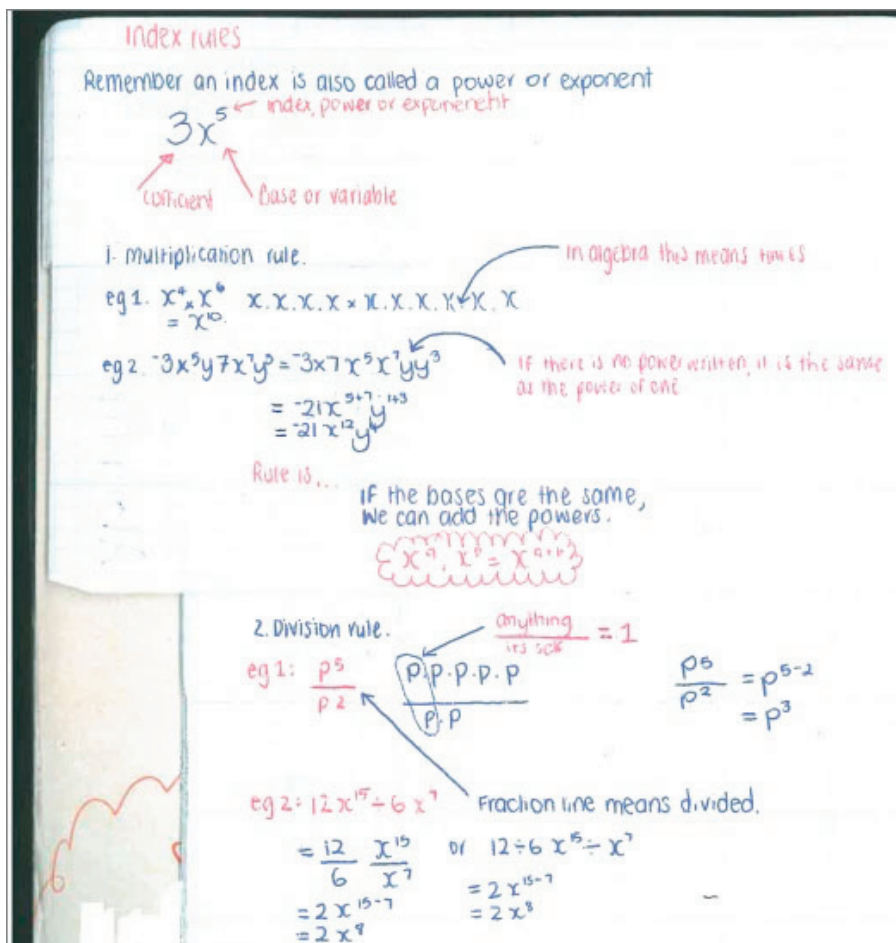 Index rules
Remember an index is also called a power or exponent
3x⁵ ← index, power or exponenent
cofficient Base or variable
1. Multiplication rule.
In algebra this means times
eg 1. x⁴ × x⁶ x.x.x.x × x.x.x.x.x.x
= x¹⁰
eg 2. ⁻3x⁵y7x⁷y³ = ⁻3×7x⁵x⁷yy³
If there is no power written, it is the same
as the power of one
= ⁻21x⁵⁺⁷y¹⁺³
= ⁻21x¹²y⁴
Rule is...
IF the bases are the same,
we can add the powers.
xᵃ. xᵇ = xᵃ⁺ᵇ
2. Division rule.
anything / its self = 1
eg 1: p⁵ / p2
p.p.p.p.p / p.p
p⁵ / p² = p⁵⁻²
= p³
eg 2: 12x¹⁵ ÷ 6x⁷
Fraction line means divided.
= 12/6 x¹⁵/x⁷ or 12÷6 x¹⁵ ÷ x⁷
= 2x¹⁵⁻⁷ = 2x¹⁵⁻⁷
= 2x⁸ = 2x⁸